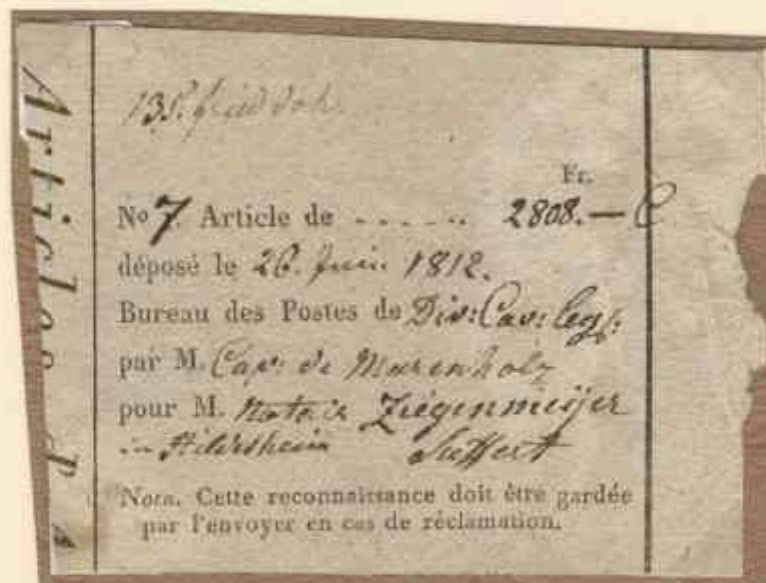 Articles P
135.
Fr.
No 7. Article de - - - - .. 2808.— C
déposé le 26. Juin 1812.
Bureau des Postes de Div: Cav: leg:
par M. Cap: de Marenholz
pour M. Notair Ziegenmeijer
in Hildesheim Suffert
Nota. Cette reconnaissance doit être gardée
par l'envoyer en cas de réclamation.